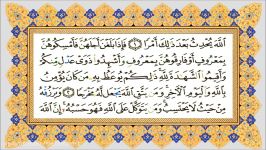 ٱللَّهَ يُحْدِثُ بَعْدَ ذَٰلِكَ أَمْرًا ١ فَإِذَا بَلَغْنَ أَجَلَهُنَّ فَأَمْسِكُوهُنَّ
بِمَعْرُوفٍ أَوْ فَارِقُوهُنَّ بِمَعْرُوفٍ وَأَشْهِدُوا۟ ذَوَىْ عَدْلٍ مِّنكُمْ
وَأَقِيمُوا۟ ٱلشَّهَٰدَةَ لِلَّهِ ذَٰلِكُمْ يُوعَظُ بِهِۦ مَن كَانَ يُؤْمِنُ
بِٱللَّهِ وَٱلْيَوْمِ ٱلْءَاخِرِ وَمَن يَتَّقِ ٱللَّهَ يَجْعَل لَّهُۥ مَخْرَجًا ٢ وَيَرْزُقْهُ
مِنْ حَيْثُ لَا يَحْتَسِبُ وَمَن يَتَوَكَّلْ عَلَى ٱللَّهِ فَهُوَ حَسْبُهُۥٓ إِنَّ ٱللَّهَ